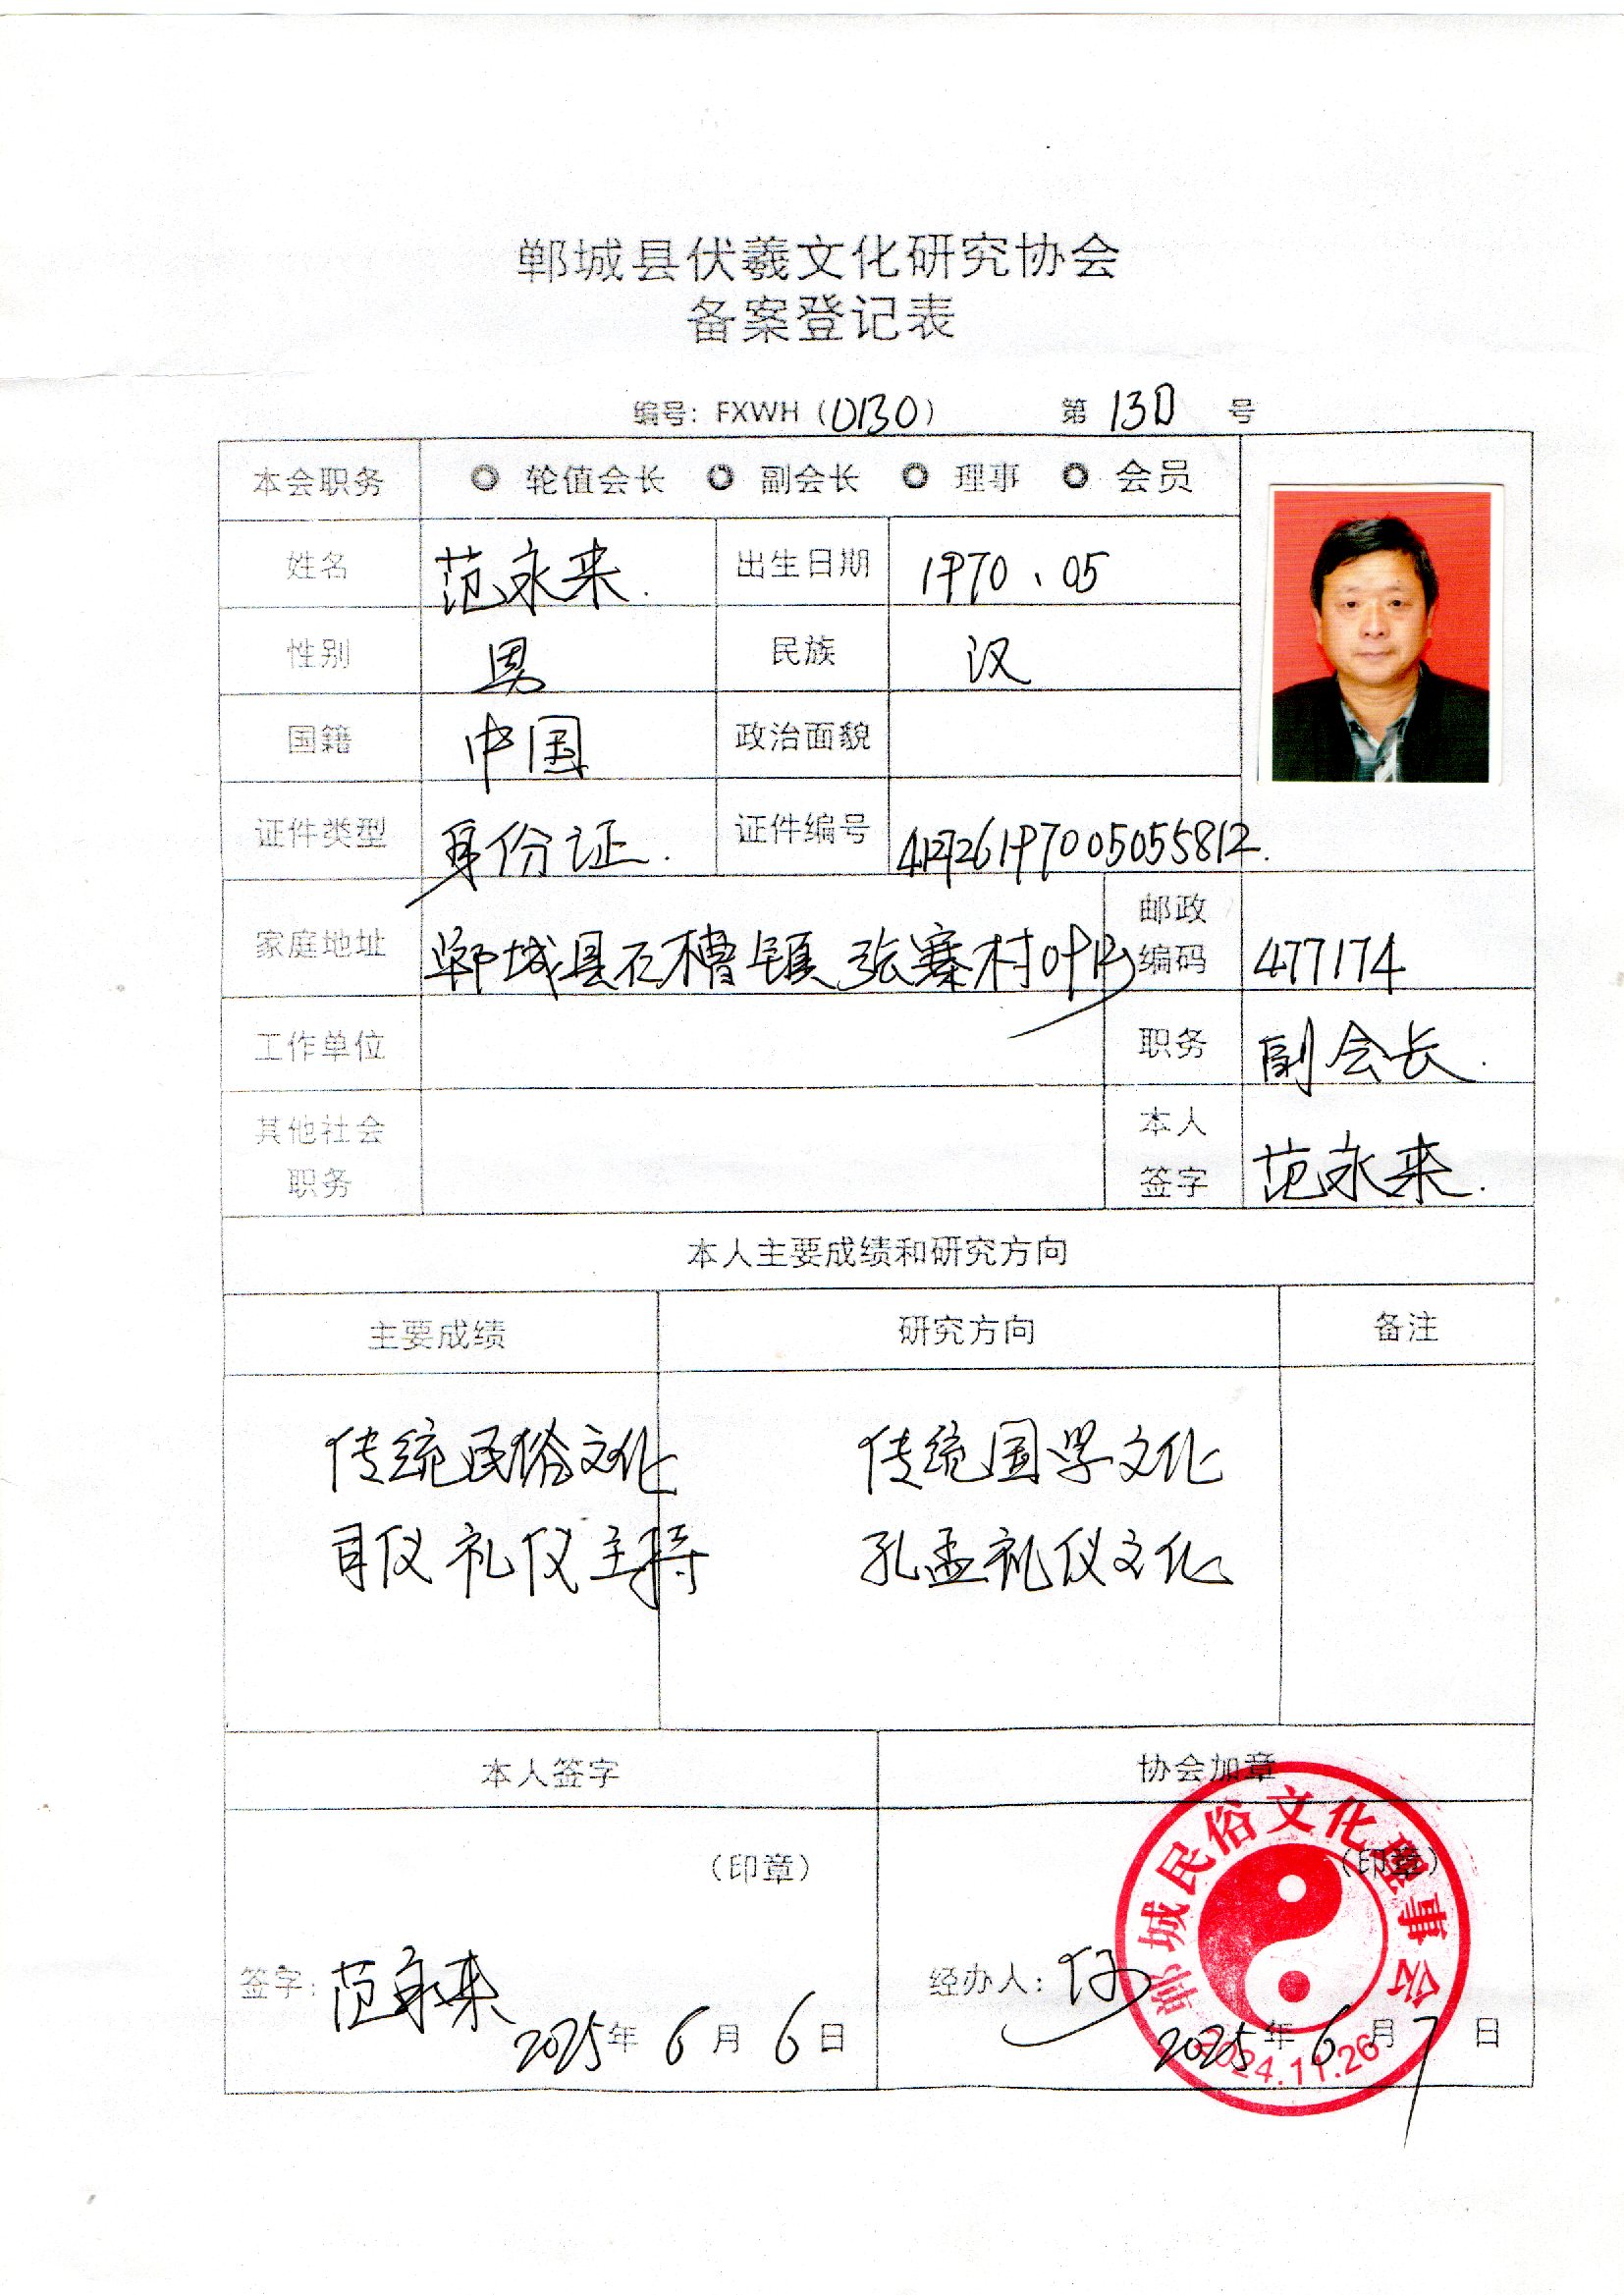 郸城县伏羲文化研究协会
备案登记表
编号：FXWH（0130） 第 130 号
本会职务 轮值会长 副会长 理事 会员
姓名 范永来. 出生日期 1970、05
性别 男 民族 汉
国籍 中国 政治面貌
证件类型 身份证. 证件编号
家庭地址 郸城县石槽镇张寨村 邮政编码 477174
工作单位 职务 副会长.
其他社会职务 本人签字 范永来.
本人主要成绩和研究方向
主要成绩 研究方向 备注
传统民俗文化 传统国学文化
司仪礼仪主持 孔孟礼仪文化
本人签字 协会加章
（印章） （印章）
签字：范永来 经办人：
2025年6月6日 2025年6月7日
郸城民俗文化理事会
2024.11.26